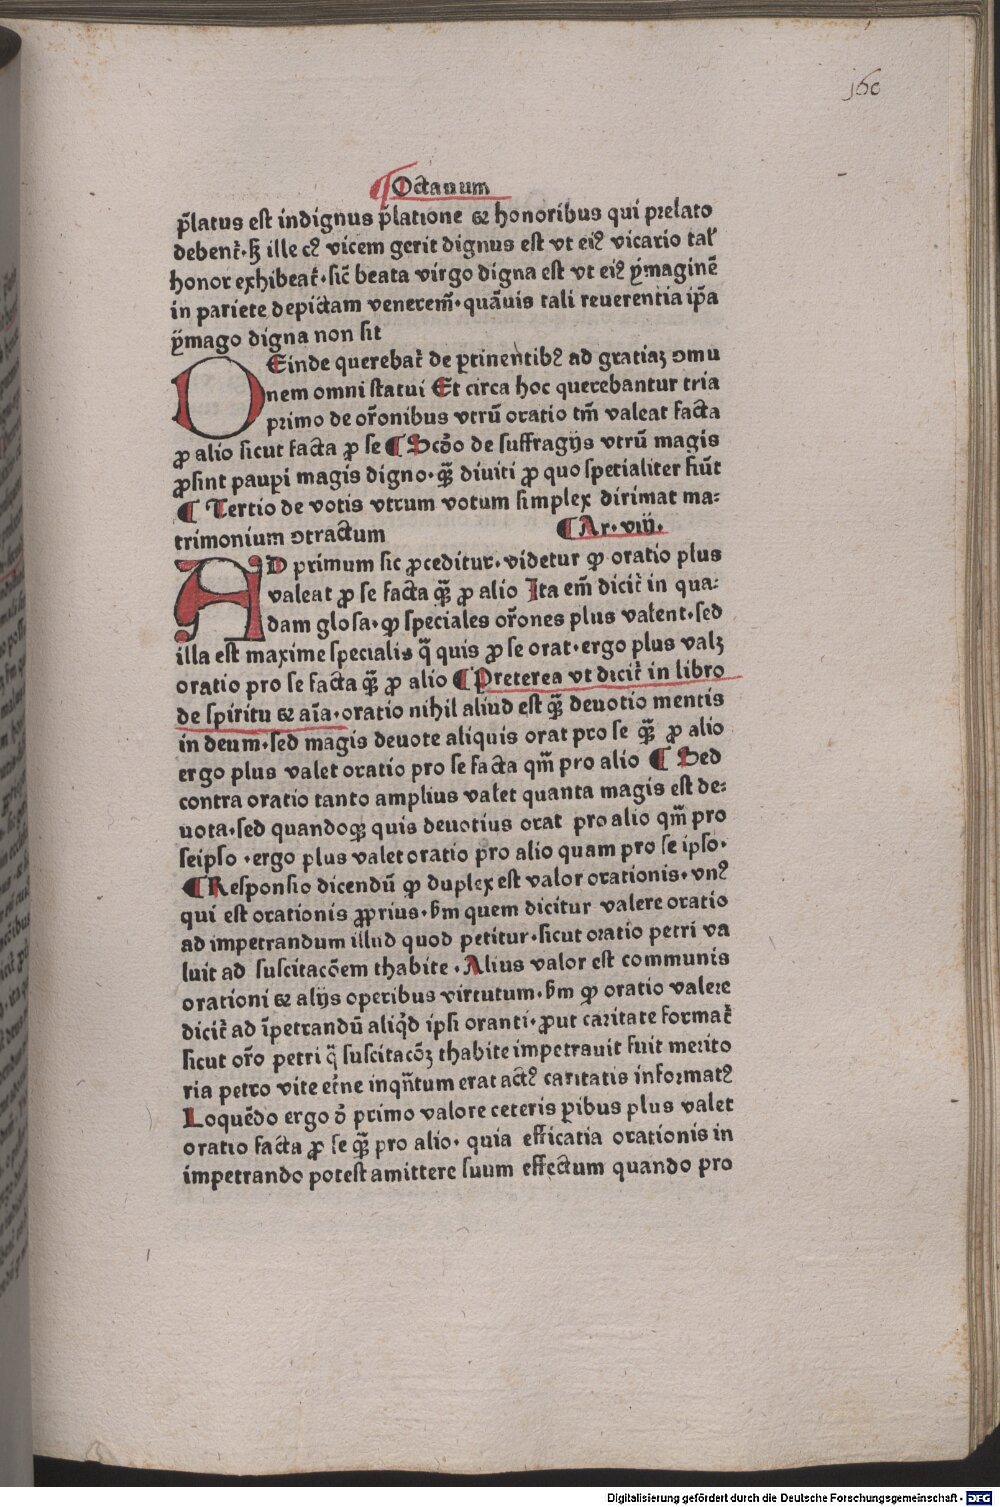 160
¶Octauum
p̃latus est indignus p̃latione ⁊ honoribus qui prelato
debent᷑·ſʒ ille cꝰ vicem gerit dignus est vt eiꝰ vicario tal̕
honor exhibeat᷑·sic̃ beata virgo digna est vt eiꝰ ẏmaginẽ
in pariete depictam venerem̃·quãuis tali reuerentia ip̃a
ẏmago digna non sit
DEinde querebat᷑ de ꝑtinentibꝰ ad gratiaʒ ↄmu
nem omni statui Et circa hoc querebantur tria
primo de or̃onibus vtrũ oratio tm̃ valeat facta
ꝓ alio sicut facta ꝓ se ¶ Scd̃o de suffragijs vtrũ magis
ꝓsint pauꝑi magis digno·qȝ̃ diuiti ꝓ quo specialiter fiũt
¶ Tertio de votis vtrum votum simplex dirimat ma:
trimonium ↄtractum ¶Ar·viij·
AD primum sic ꝓceditur·videtur ꝙ oratio plus
valeat ꝓ se facta qȝ̃ ꝓ alio Ita em̃ dicit᷑ in qua:
dam glosa·ꝙ speciales or̃ones plus valent·sed
illa est maxime specialis q̃ quis ꝓ se orat·ergo plus valʒ
oratio pro se facta qȝ̃ ꝓ alio ¶Preterea vt dicit᷑ in libro
de spiritu ⁊ aĩa·oratio nihil aliud est qȝ̃ deuotio mentis
in deum·sed magis deuote aliquis orat pro se qȝ̃ ꝓ alio
ergo plus valet oratio pro se facta qm̃ pro alio ¶ Sed
contra oratio tanto amplius valet quanta magis est de:
uota·sed quandoqȝ quis deuotius orat pro alio qm̃ pro
seipso ·ergo plus valet oratio pro alio quam pro se ipso·
¶Responsio dicendũ ꝙ duplex est valor orationis·vnꝰ
qui est orationis ꝓprius·ẜm quem dicitur valere oratio
ad impetrandum illud quod petitur·sicut oratio petri va
luit ad suscitacõem thabite ·Alius valor est communis
orationi ⁊ alijs operibus virtutum·ẜm ꝙ oratio valere
dicit᷑ ad ĩpetrandũ aliq̇d ipsi oranti·ꝓut caritate format᷑
sicut or̃o petri q̃ suscitacõʒ thabite impetrauit fuit merito
ria petro vite et̃ne inqñtum erat actꝰ caritatis informatꝰ
Loquẽdo ergo õ primo valore ceteris ꝑibus plus valet
oratio facta ꝓ se qȝ̃ pro alio· quia efficatia orationis in
impetrando potest amittere suum effectum quando pro
Digitalisierung gefördert durch die Deutsche Forschungsgemeinschaft - DFG